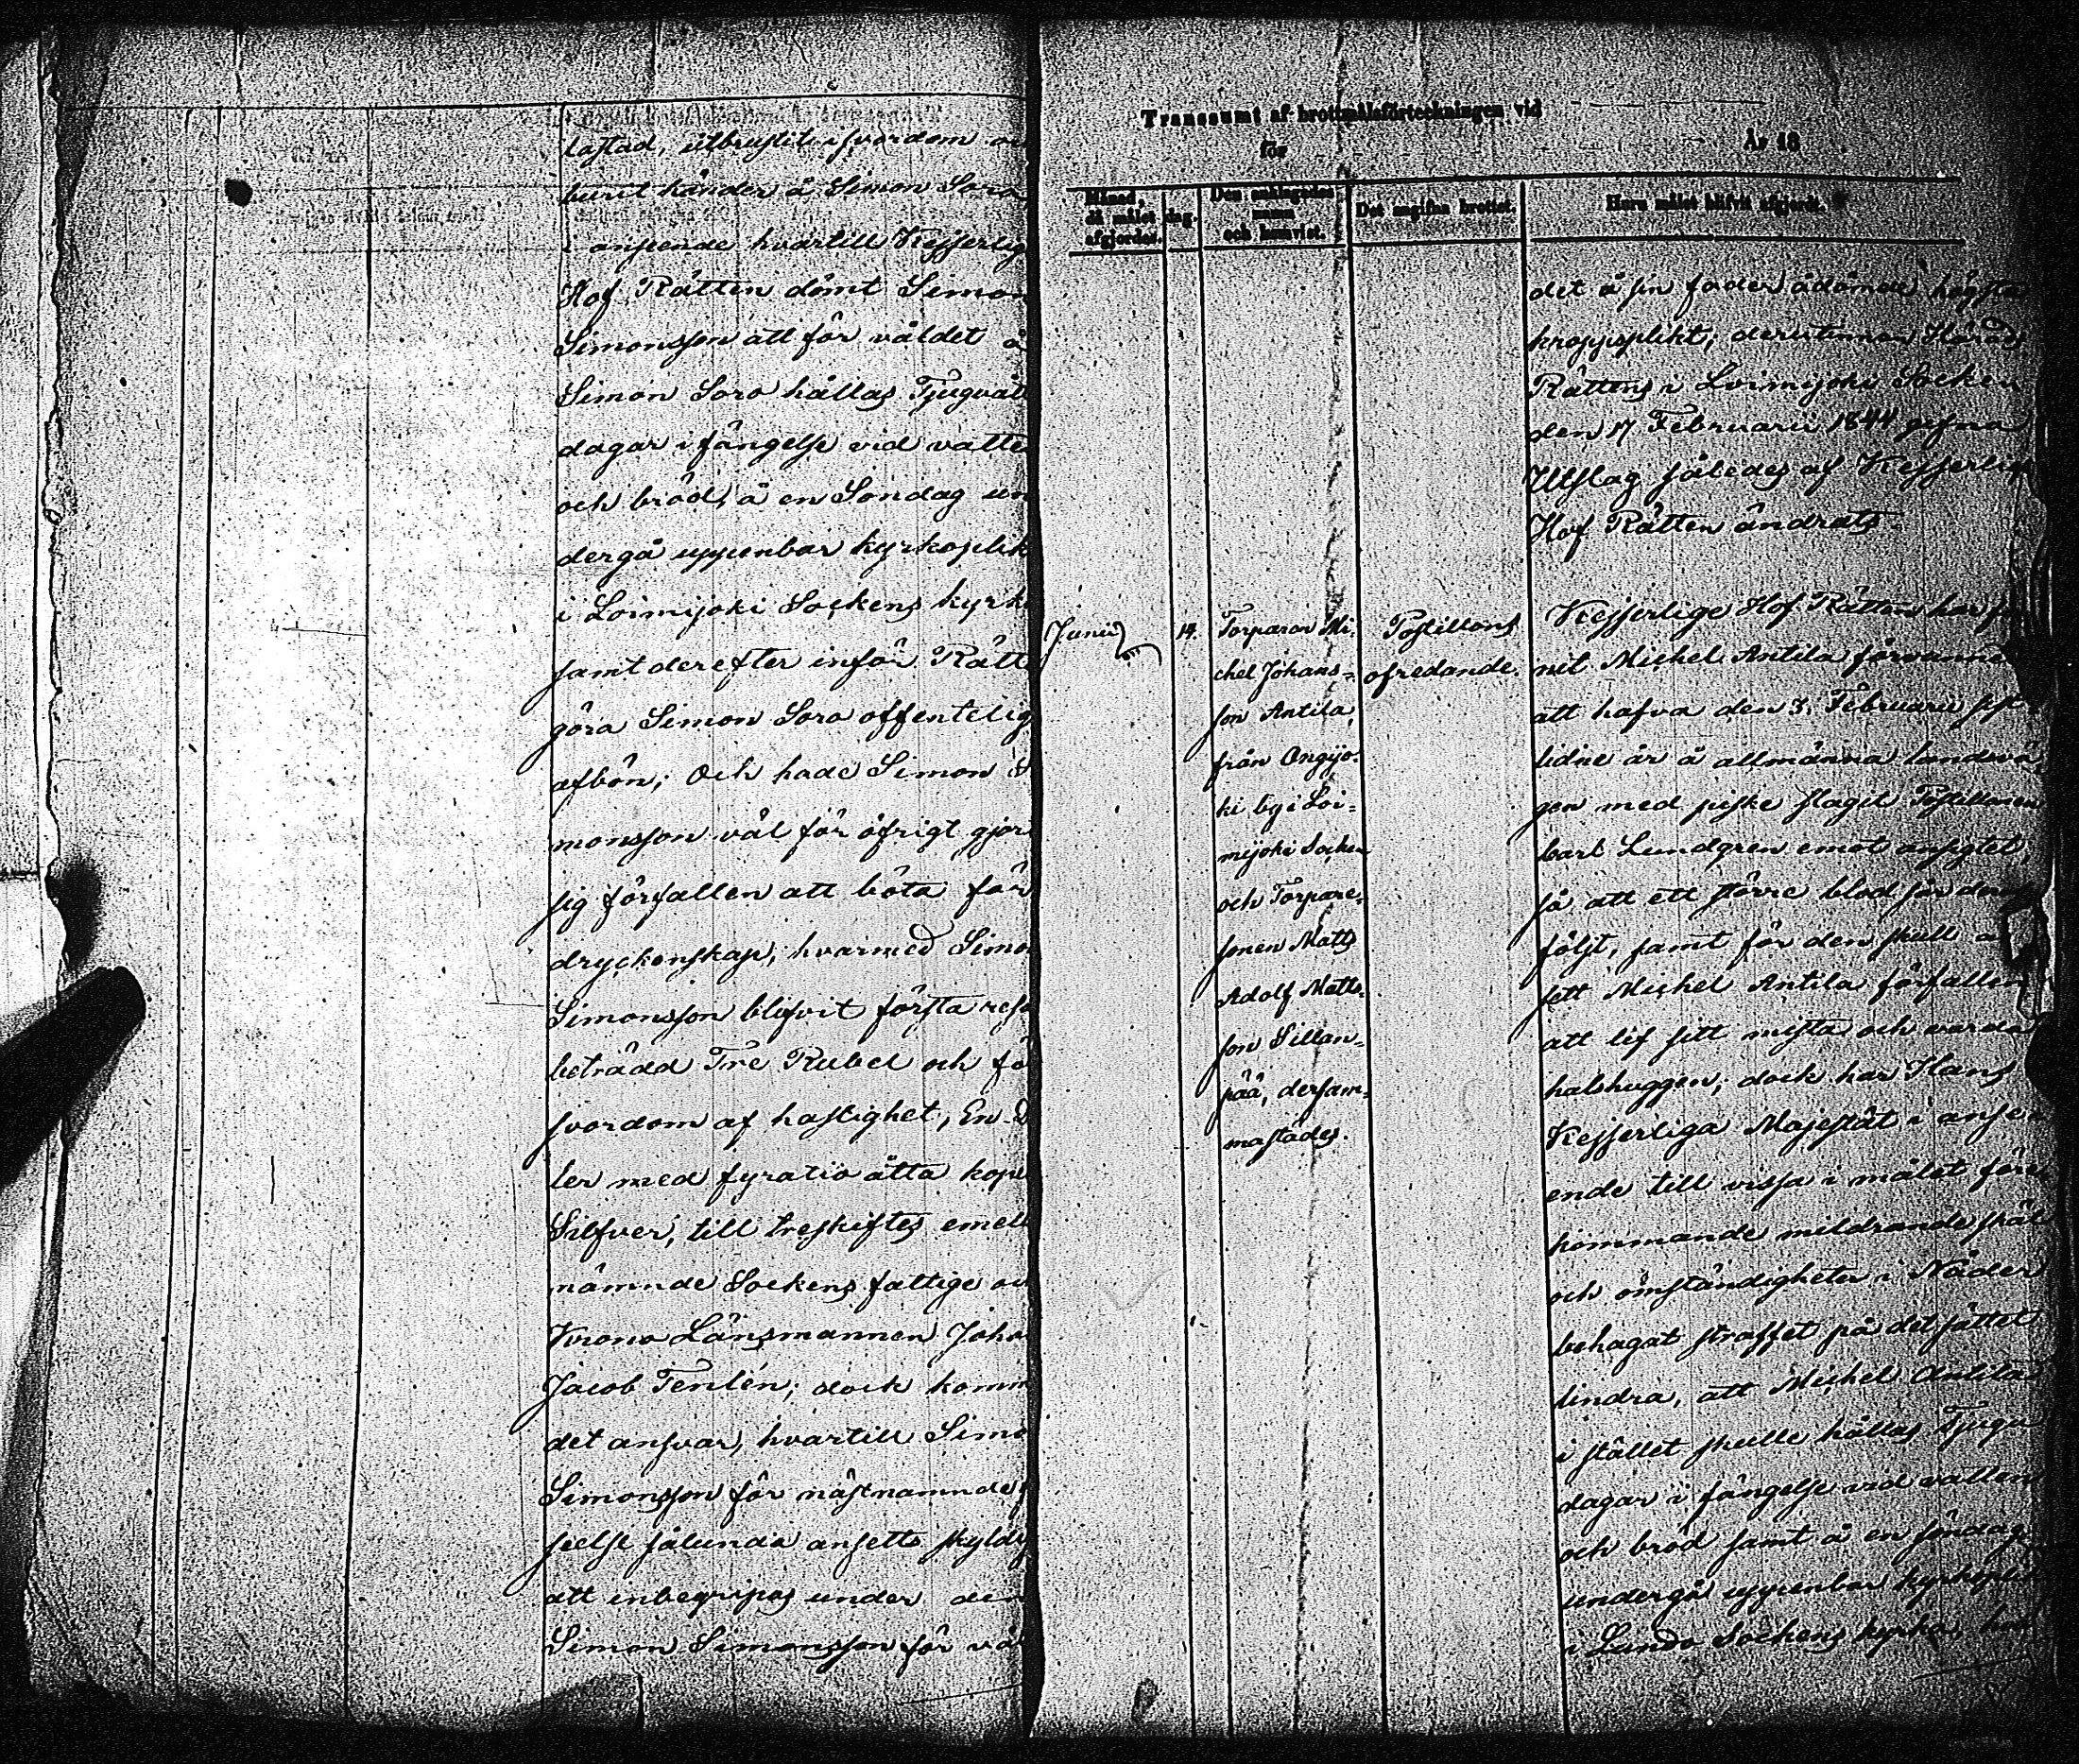 lastad, utbrustit i svordom oc
burit händer å Simon Soro
i anseende hvartill Kejserlig
Hof Rätten dömt Simon
Simonsson att för våldet å
Simon Soro hållas Tjuguåtta
dagar i fängelse vid vatte
och bröd, å en Söndag un
dergå uppenbar kyrkoplik
i Loimijoki Sockens kyrk
samt derefter inför Rätte
göra Simon Soro offentelig
afbön; Och hade Simon Si
monsson väl för öfrigt gjort
sig förfallen att böta för
dryckenskap, hvarmed Simo
Simonsson blifvit första resa
beträdd Tre Rubel och fö
svordom af hastighet, En R
ler med fyratio åtta kope
Silfver, till treskiftes emell
nämnde Sockens fattige oc
Krono Länsmannen Joha
Jacob Tenlén; dock komm
det ansvar, hvartill Simo
Simonsson för nästnämnde f
seelse sålunda ansetts skyldig
att inbegripas under den
Simon Simonsson för vål
Transsumt af brottmålsförteckningen vid
för År 18
Månad, då målet afgjordes.
dag.
Den anklagades namn och hemvist.
Det angifna brottet.
Huru målet blifvit afgjordt.
det å sin fader ådömde högsta
kroppsplikt, derutinnan Härads
Rättens i Loimijoki Socken
den 17 Februarii 1844 gifna
Utslag således af Kejserlige
Hof Rätten ändrats.
Junii
14.
Torparen Mi=
chel Johans=
son Antila
från Ongijo=
ki by i Loi=
mijoki Socken
och Torpare
sonen Matts
Adolf Matts=
son Sillan=
pää, dersam=
mastädes.
Postillons
ofredande.
Kejserlige Hof Rätten har fun
nit Michel Antila förvunnen
att hafva den 3. Februarii sist
lidne år å allmänna landsvä
gen med piska slagit Postillonen
Carl Lundgren emot ansigtet,
så att ett större blod sår deraf
följt, samt för den skull an
sett Michel Antila förfallen
att lif sitt mista och varda
halshuggen; dock har Hans
Kejserliga Majestät i anse
ende till vissa i målet före
kommande mildrande skäl
och omständigheter i Nåder
behagat straffet på det sättet
lindra, att Michel Antila
i stället skulle hållas Tjugu
dagar i fängelse vid vatten
och bröd samt å en söndag
undergå uppenbar kyrkopli
i Lundo Sockens kyrka, hva